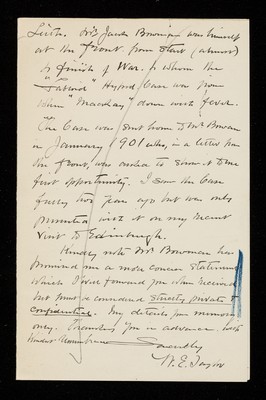 Leith. Mr Jack Bowman was himself
at the front from start (almost)
to finish of War. to whom the
Hypod. Case was from
down with fever.
The Case was sent home to Mr Bowman
in January 1901 who, in a letter from
the front, was asked to show it to me
first opportunity. I saw this Case
fully two years ago but was only
presented with it on my recent
visit to Edinburgh.
Kindly note Mr Bowman has
promised me a more concise statement
which I will forward you when received
but must be considered strictly private &
confidential. My details for
only. Thanking you in advance. With
kindest remembrances
Sincerely
W. E. Taylor